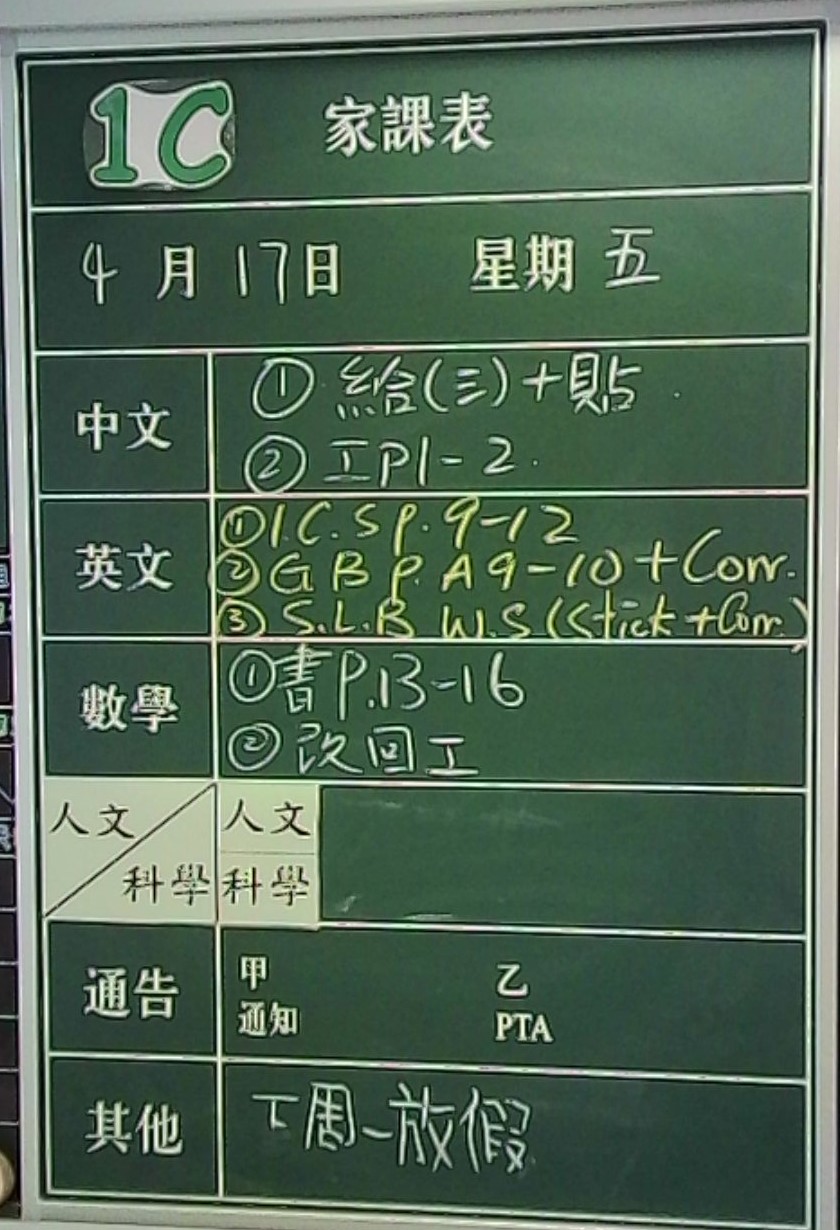 1C 家課表
4月17日 星期五
中文
① 給(三)+貼
② 工P1-2.
英文
① I.C.S P. 9-12
② G B P. A9-10 + Corr.
③ S.L.B W.S (Stick + Corr.)
數學
① 書P.13-16
② 改回工
人文 人文
科學 科學
通告
甲 乙
通知 PTA
其他
下周一放假